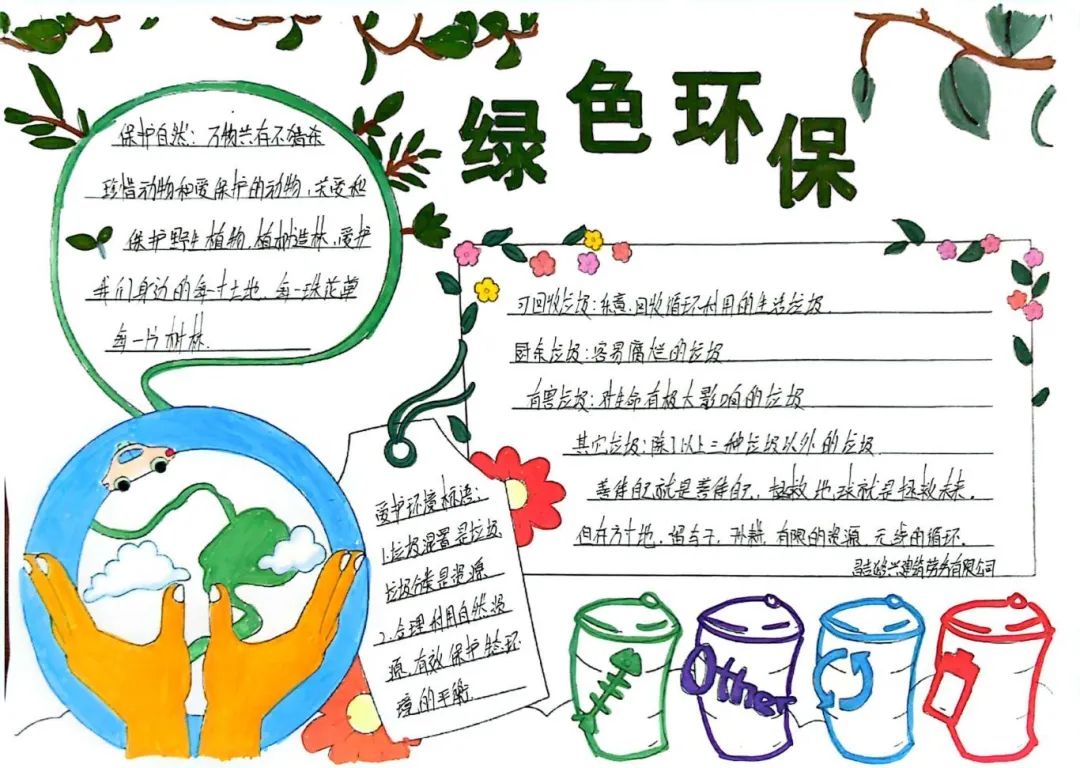 绿色环保
保护自然：万物共有不猎杀
珍惜动物和爱保护的动物，关爱和
保护野生植物，植树造林，爱护
我们身边的每一寸土地，每一珠花草
每一片树林.
可回收垃圾：回收循环利用的生活垃圾.
厨余垃圾：容易腐烂的垃圾.
有害垃圾：对生命有极大影响的垃圾
其它垃圾：除了以上三种垃圾以外的垃圾.
善待自己就是善待自己，拯救地球就是拯救未来.
但存方寸地，留与子孙耕，有限的资源，无步的循环.
建筑劳务有限公司
爱护环境标语：
1.垃圾混置是垃圾
垃圾分类是资源
2.合理利用自然资
源，有效保护生态环
境的平衡.
Other